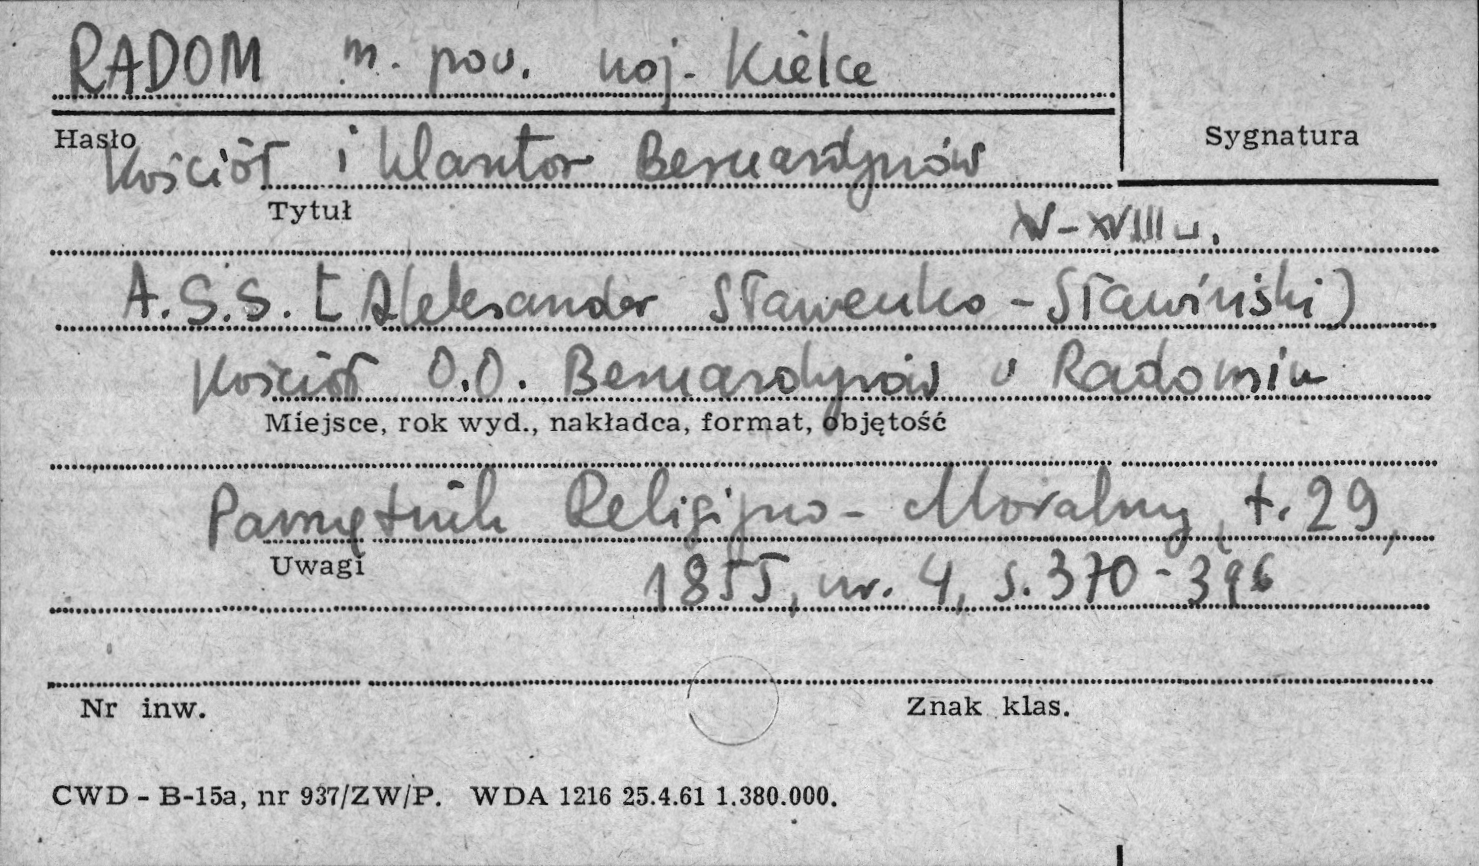 RADOM m. pow. woj. Kielce
Hasło
Sygnatura
Kościół i klasztor Bernardynów
Tytuł
XV-XVIII w.
A.S.S. [Aleksander Sławenko-Sławiński)
Kościół O.O. Bernardynów w Radomiu
Miejsce, rok wyd., nakładca, format, objętość
Pamiętnik Religijno-Moralny, t. 29,
Uwagi
1855, nr. 4, s. 370-396
Nr inw.
Znak klas.
CWD - B-15a, nr 937/ZW/P. WDA 1216 25.4.61 1.380.000.